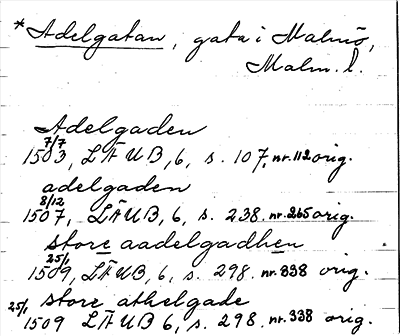 *Adelgatan, gata i Malmö,
Malm. l.
Adelgaden
7/7
1503, LÄUB, 6, s. 107, nr. 112 orig.
adelgaden
8/12
1507, LÄUB, 6, s. 238. nr. 265 orig.
store aadelgadhen
25/1
1509, LÄUB, 6, s. 298. nr. 338 orig.
25/1 store athelgade
1509 LÄUB, 6, s. 298. nr. 338 orig.